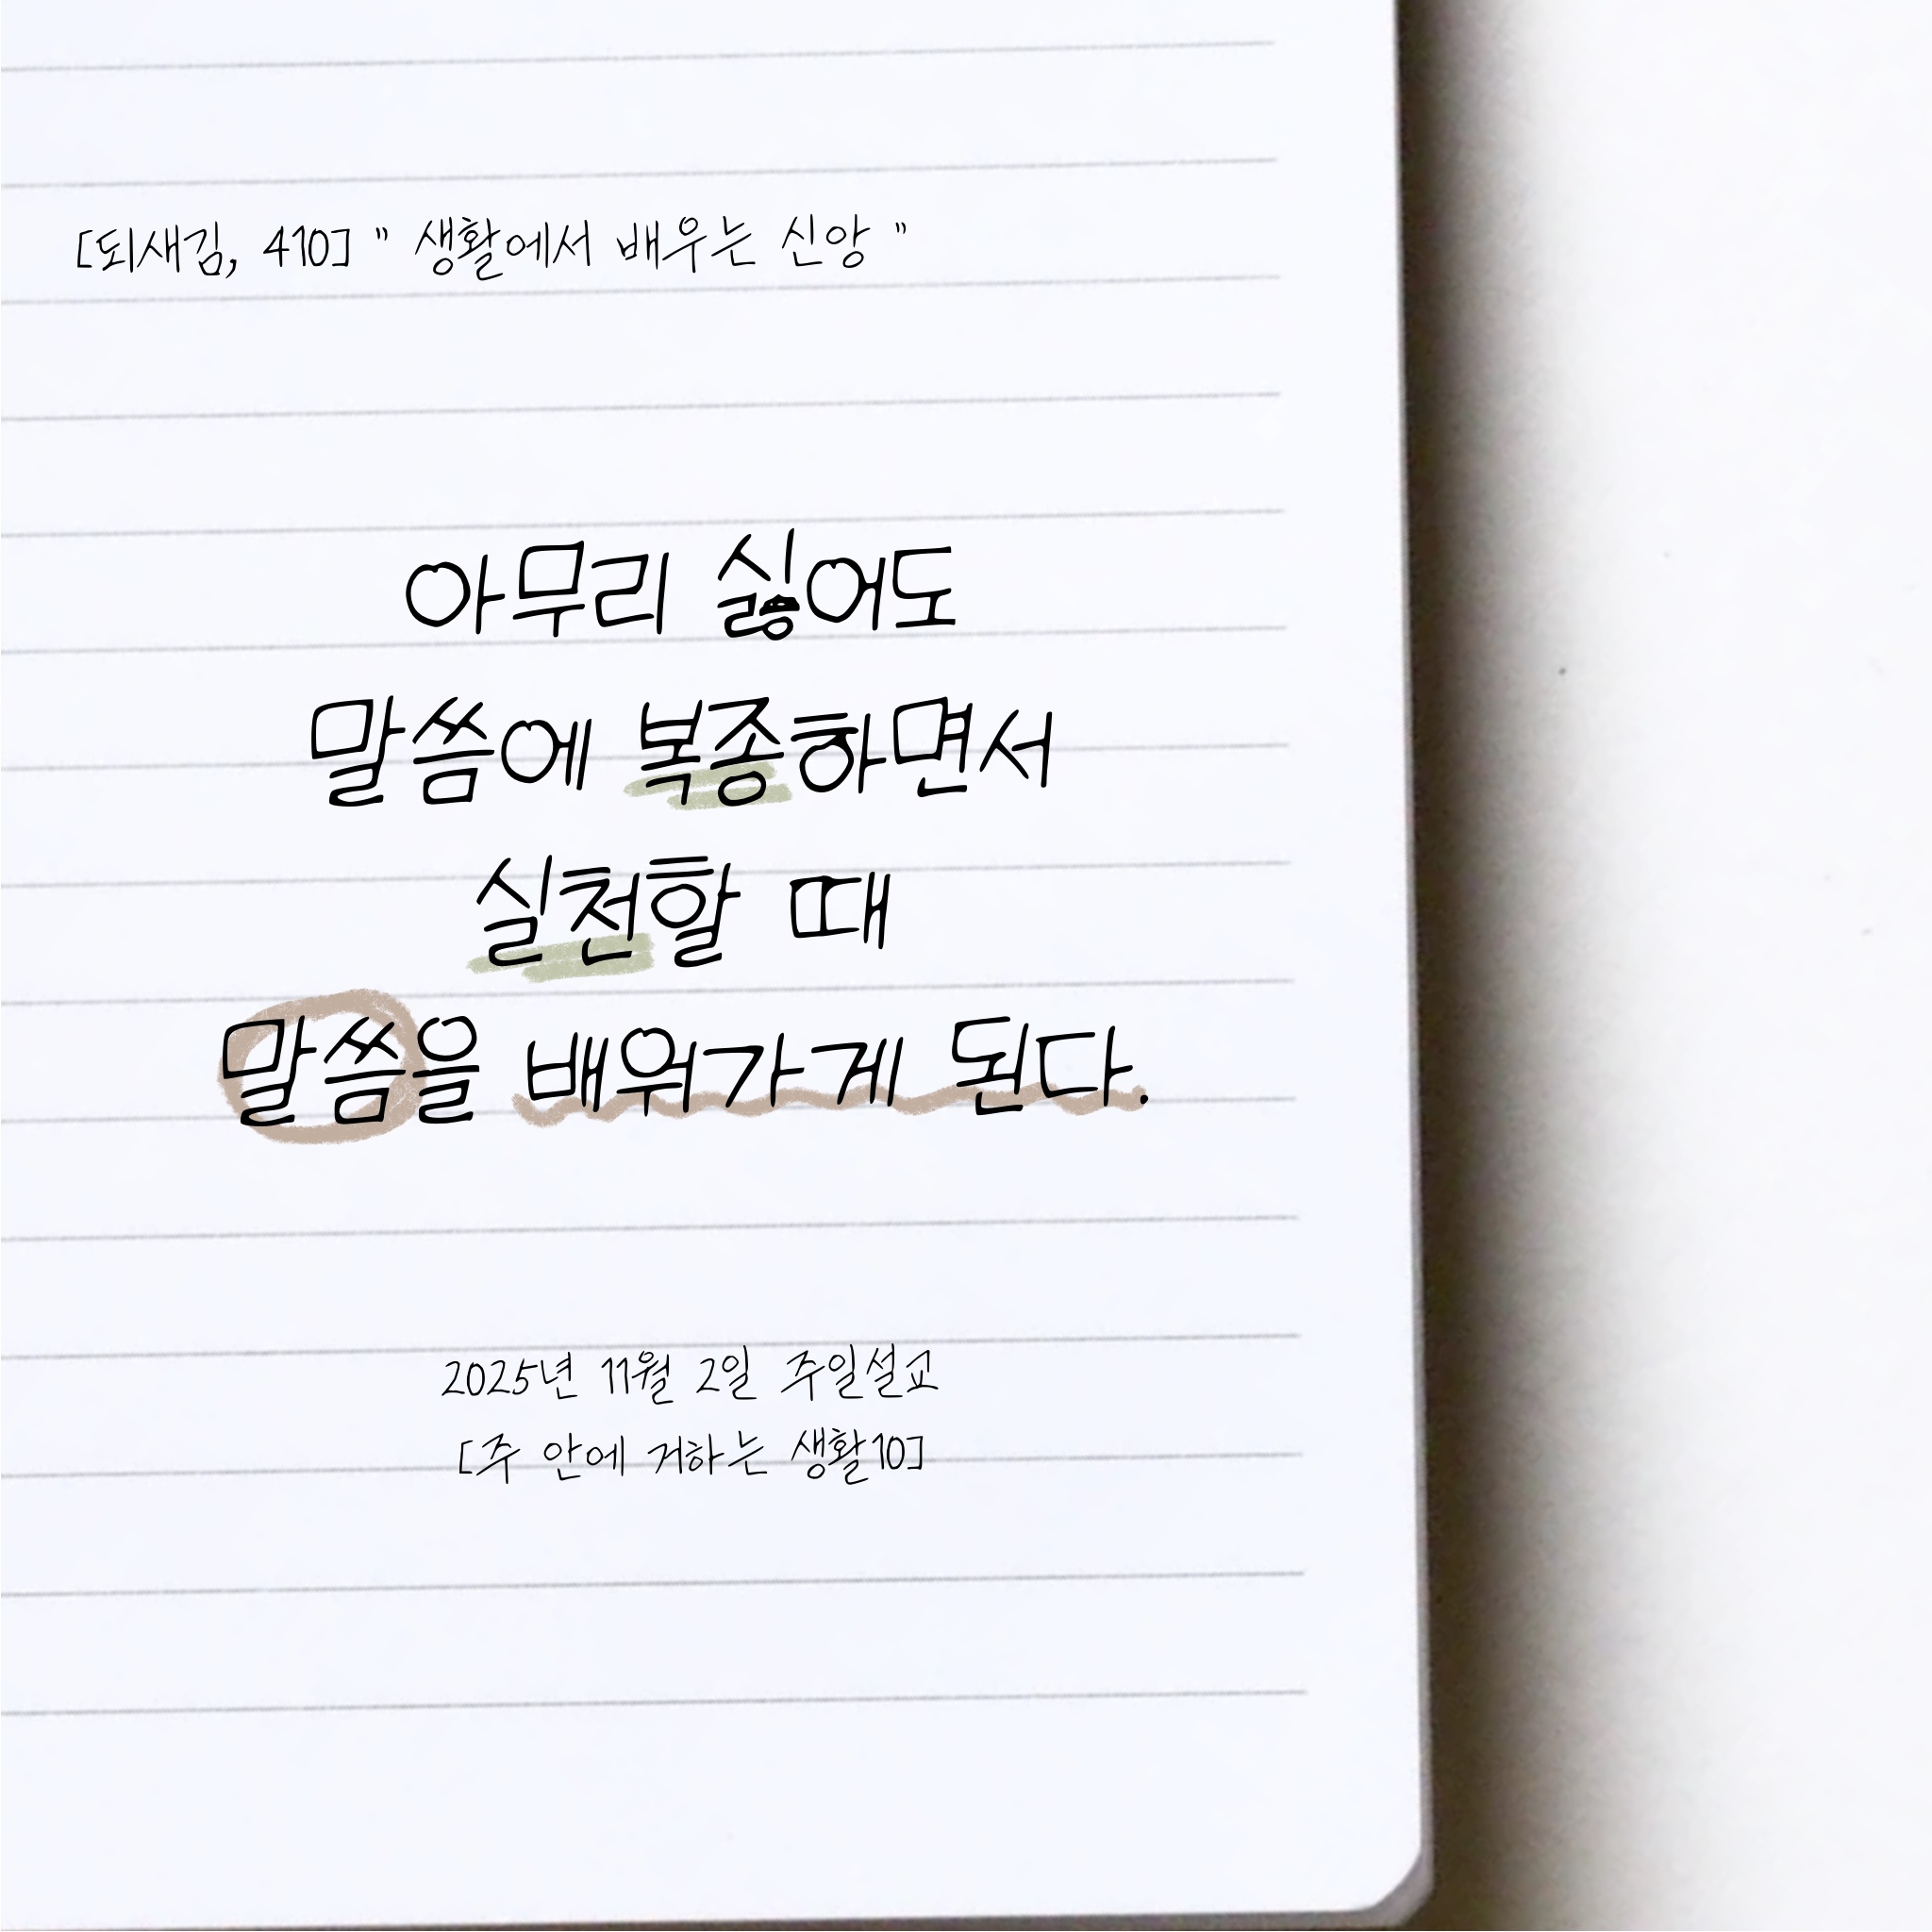 [되새김, 410] " 생활에서 배우는 신앙 "
아무리 싫어도
말씀에 복종하면서
실천할 때
말씀을 배워가게 된다.
2025년 11월 2일 주일설교
[주 안에 거하는 생활10]